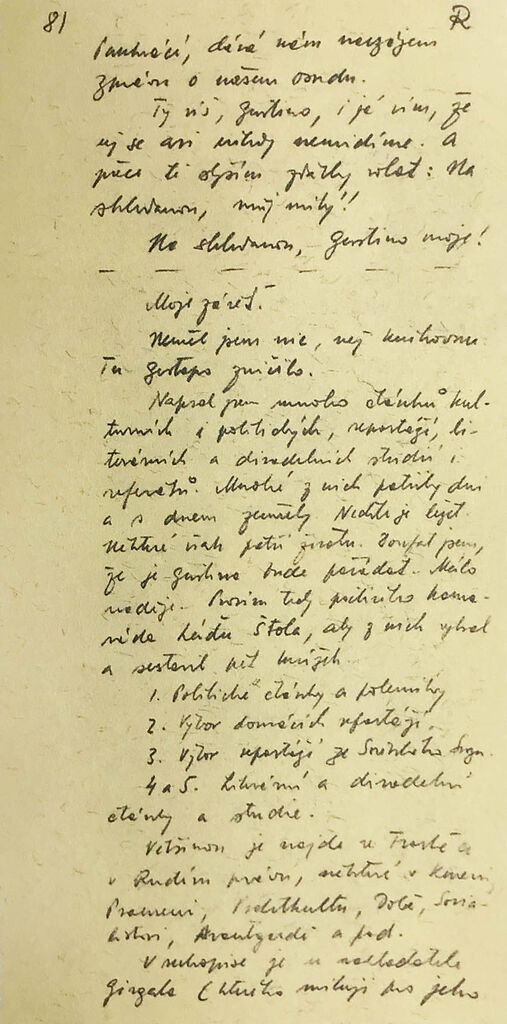 81 R
Pankráci, dává nám navzájem
zprávu o našem osudu.
Ty víš, Gustino, i já vím, že
už se asi nikdy neuvidíme. A
přece tě slyším zdálky volat: Na
shledanou, můj milý!
Na shledanou, Gustino moje!
Moje závěť.
Neměl jsem nic, než knihovnu
Tu gestapo zničilo.
Napsal jsem mnoho článků kul-
turních i politických, reportáží, li-
terárních a divadelních studií i
referátů. Mnohé z nich patřily dni
a s dnem zemřely Nechte je ležet
Některé však patří životu. Doufal jsem,
že je Gustina bude pořádat. Málo
naděje. Prosím tedy poctivého kama-
ráda Láďu Štola, aby z nich vybral
a sestavil pět knížek
1. Politické články a polemiky
2. Výbor domácích reportáží.
3. Výbor reportáží ze Sovětského Svazu
4 a 5. Literární a divadelní
články a studie.
Většinou je najde ve Tvorbě a
v Rudém právu, některé v Kmeni,
Prameni, Proletkultu, Době, Socia-
listovi, Avantgardě a pod.
V rukopise je u nakladatele
Girgala (kterého miluji pro jeho